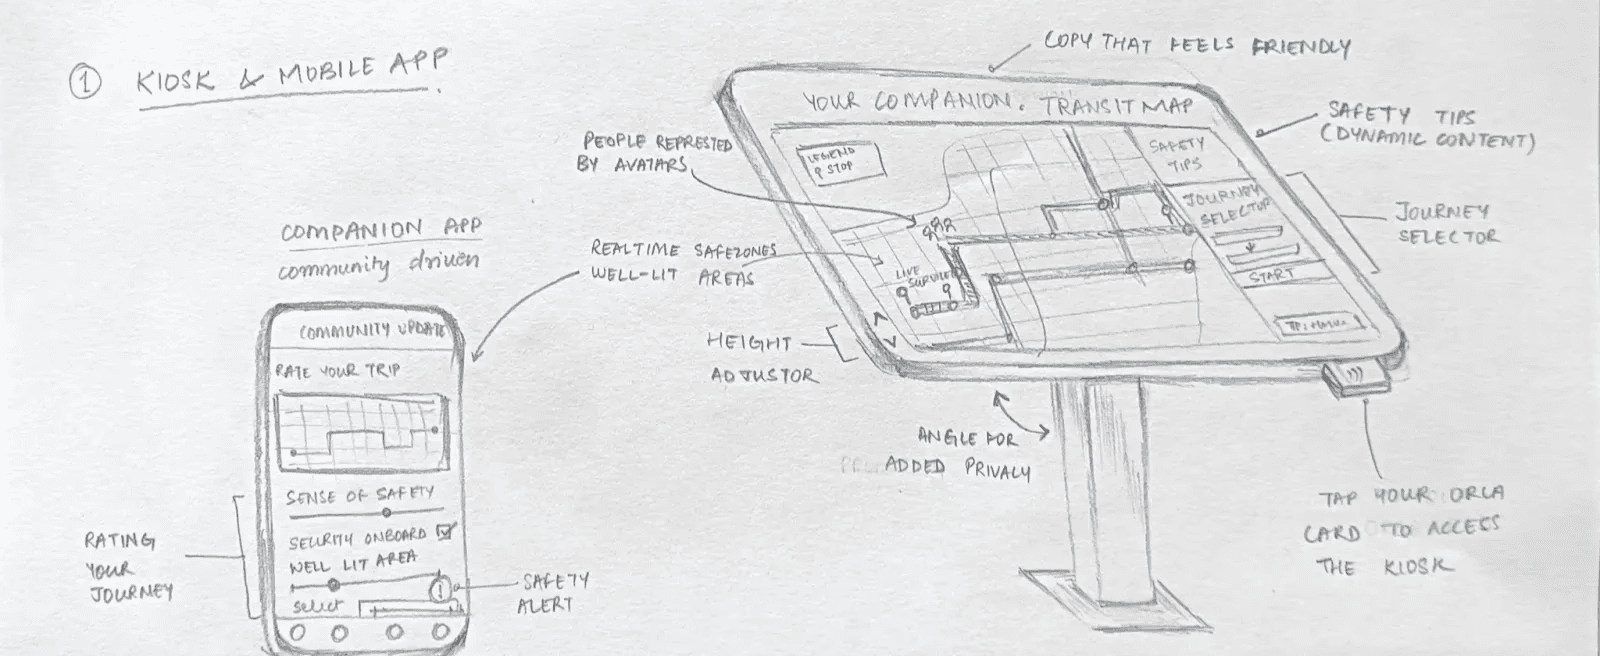 1 KIOSK & MOBILE APP.
COPY THAT FEELS FRIENDLY
YOUR COMPANION. TRANSIT MAP
SAFETY TIPS
(DYNAMIC CONTENT)
PEOPLE REPRESTED
BY AVATARS
LEGEND
STOP
SAFETY
TIPS
JOURNEY
SELECTOR
START
JOURNEY
SELECTOR
COMPANION APP
community driven
REALTIME SAFEZONES
WELL-LIT AREAS
LIVE
HEIGHT
ADJUSTOR
ANGLE FOR
ADDED PRIVACY
TAP YOUR ORCA
CARD TO ACCESS
THE KIOSK
COMMUNITY UPDATE
RATE YOUR TRIP
SENSE OF SAFETY
SECURITY ONBOARD
WELL LIT AREA
select
RATING
YOUR
JOURNEY
SAFETY
ALERT